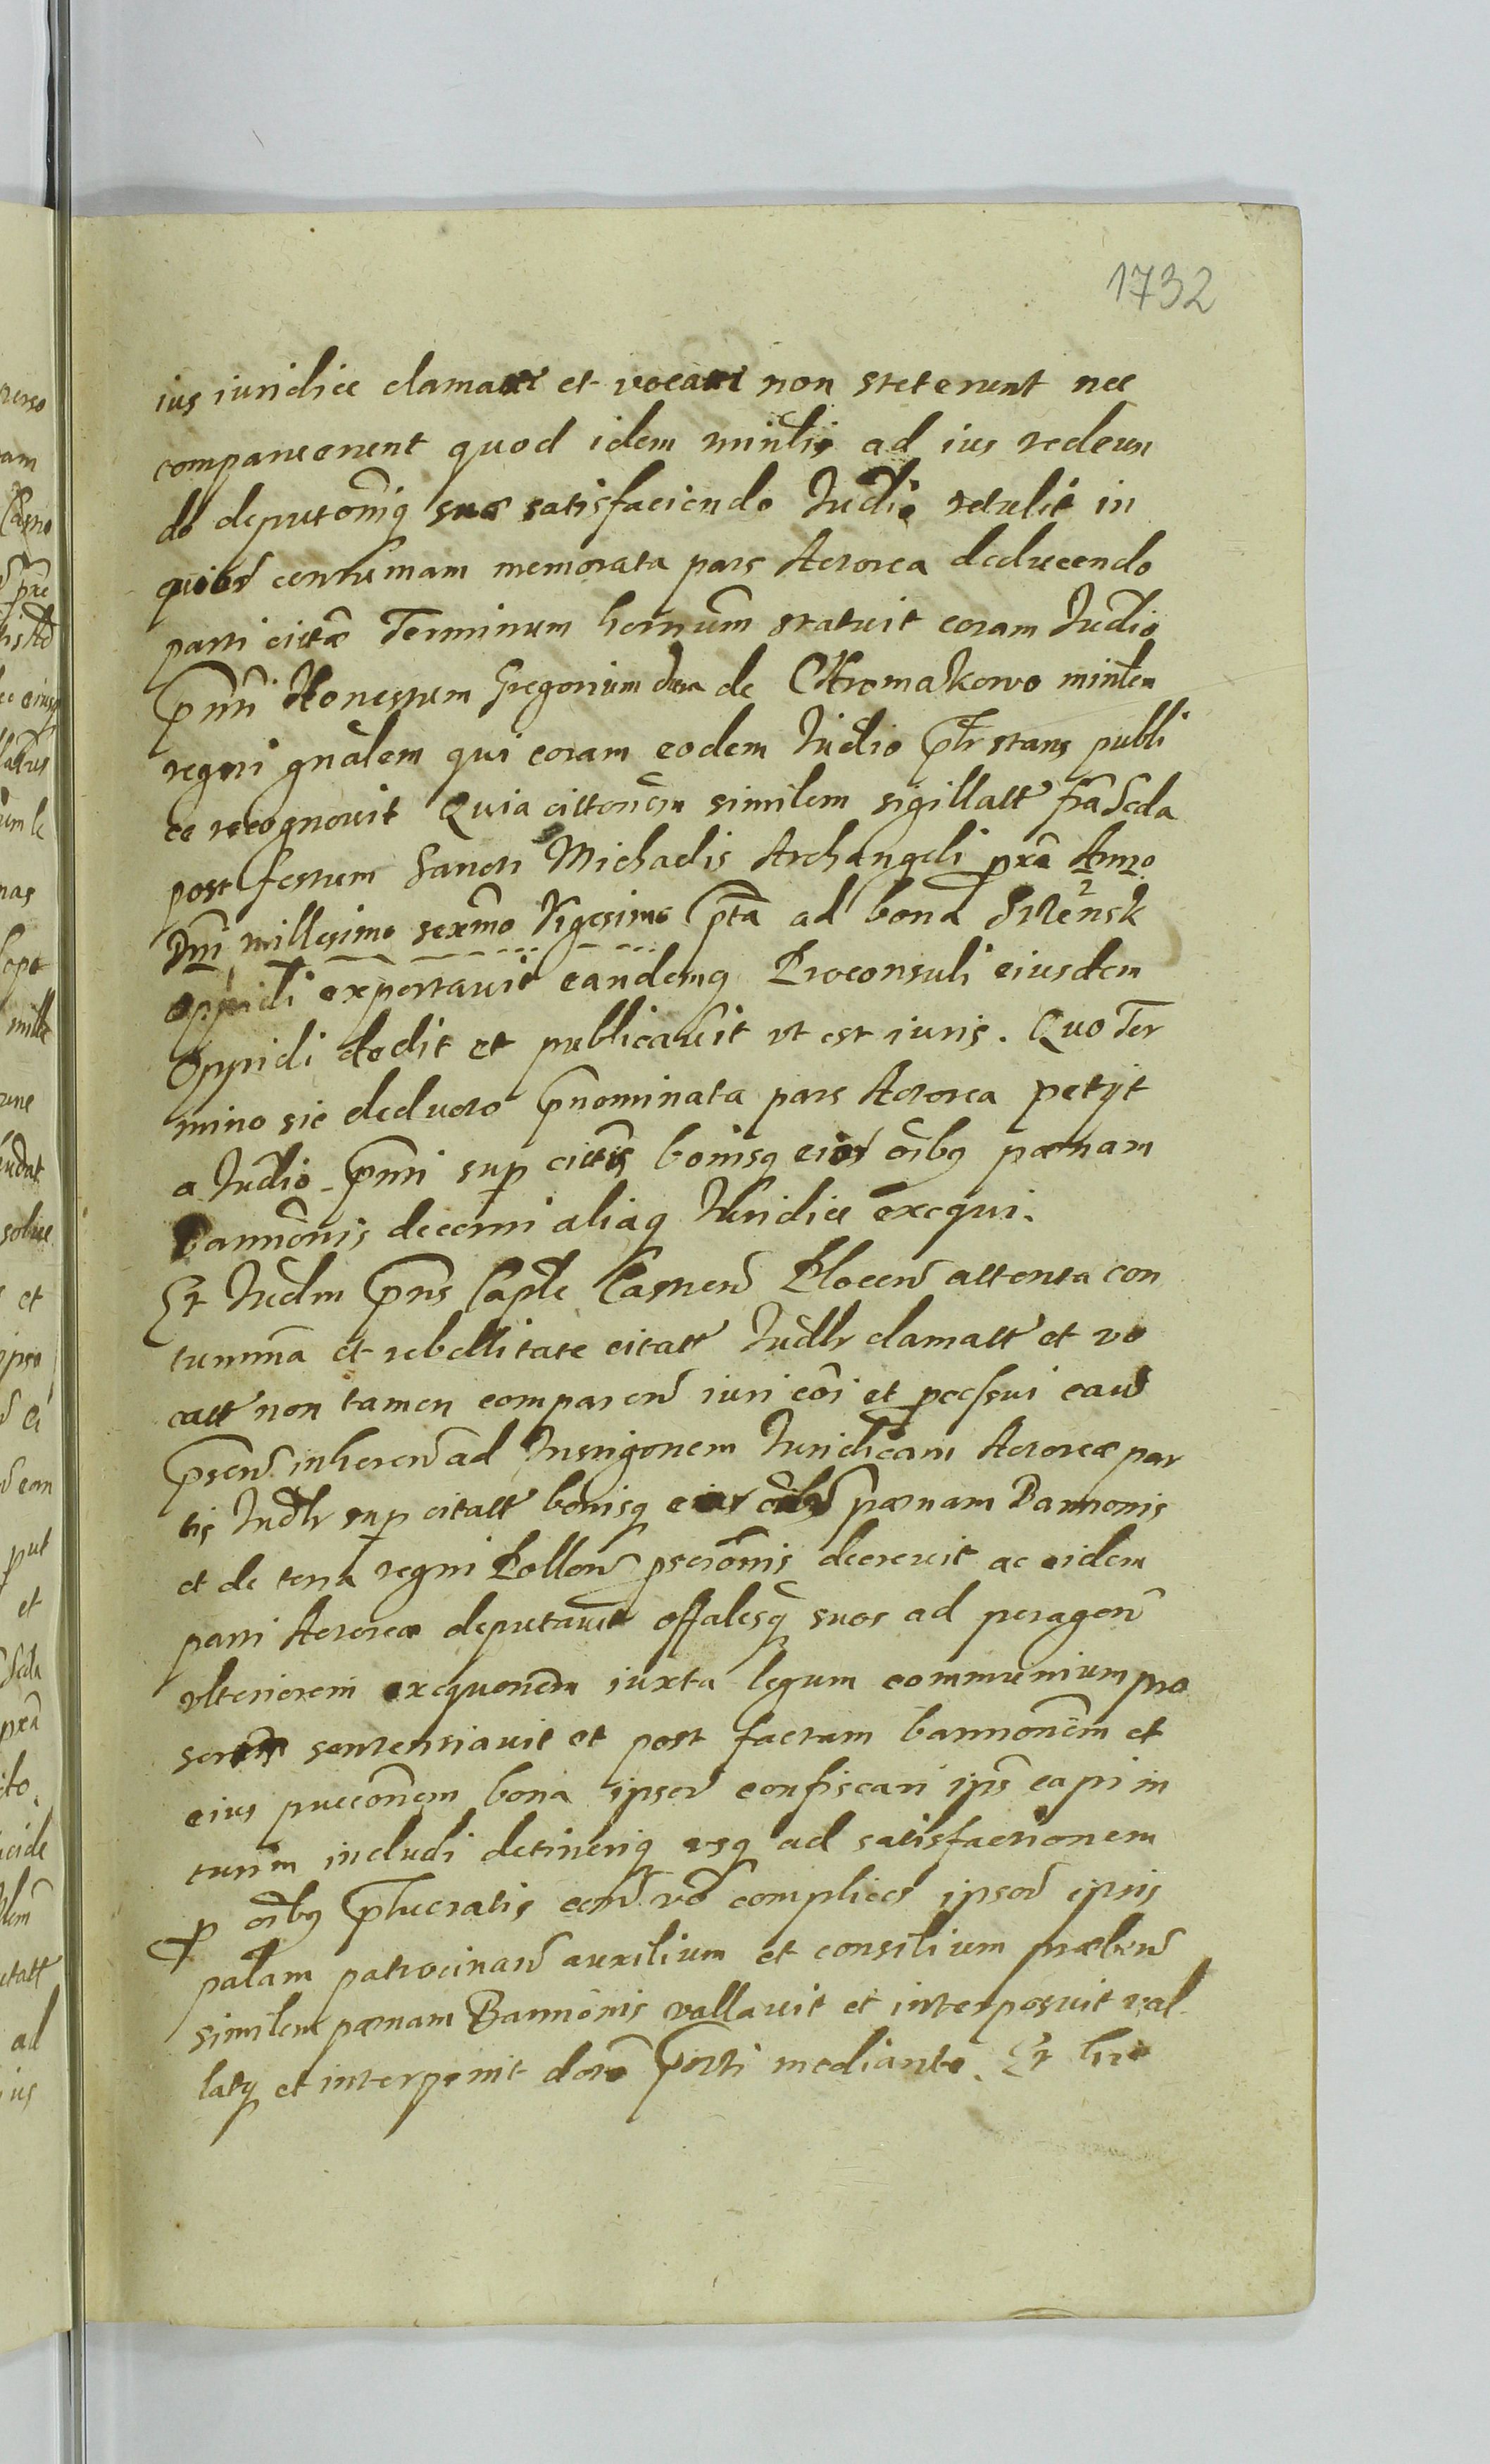 1732
ius iuridice clamatt et vocatt non steterunt nec
comparuerunt quod idem mintlis ad ius redeun
do deputonīq suæ satisfaciendo Iudīo retulit in
quor contumam memorata pars Actorea deducendo
parti cittæ Terminum hornum statuit coram Iudīo
pnti Honestum Gregorium de Chromakowo mintlem
regni gnālem qui coram eodem Iudīo pltr stans publi
ce recognouit Quia cittonem similem sigillatt fra 2da
post festum Sancti Michaelis Archangeli prā Anno
Dni millesimo sexmo Vigesimo 2 pta ad bona Srzensk
oppidi exportauit eandemq Proconsuli eiusdem
Oppidi dedit et publicauit vt est iuris. Quo Ter
mino sic deducto pnominata pars Actorea petyt
a Iudīo pnti sup cittis bonisq eior oibq pœnam
Bannōnis decerni aliaq Iuridice exequi.
Et Iudm pns Captle Castren Plocen attenta con
tumma et rebellitate citatt Iudlr clamatt et vo
catt non tamen comparen iuri cōi et pcessui caus
psen inheren ad Instigonem Iuridicam Actoreæ par
tis Iudlr sup citatt bonisq eior oibq pœnam Bannonis
et de terra regni Pollon pscrōnis decreuit ac eidem
parti Actoreæ deputauit offalesq suos ad peragen
vlteriorem exequonem iuxta legum communium præ
scrm sententiauit et post factam bannonem et
eius puccōnem bona ipsor confiscari ips capi in
turrim includi detineriq vsq ad satisfactionem
p oibq plucratis eor vō complices ipsor ipsis
palam patrocinan auxilium et consilium præben
similem pœnam Bannōnis vallauit et interposuit val
latq et interponit dcrō pnti mediante. Et hic